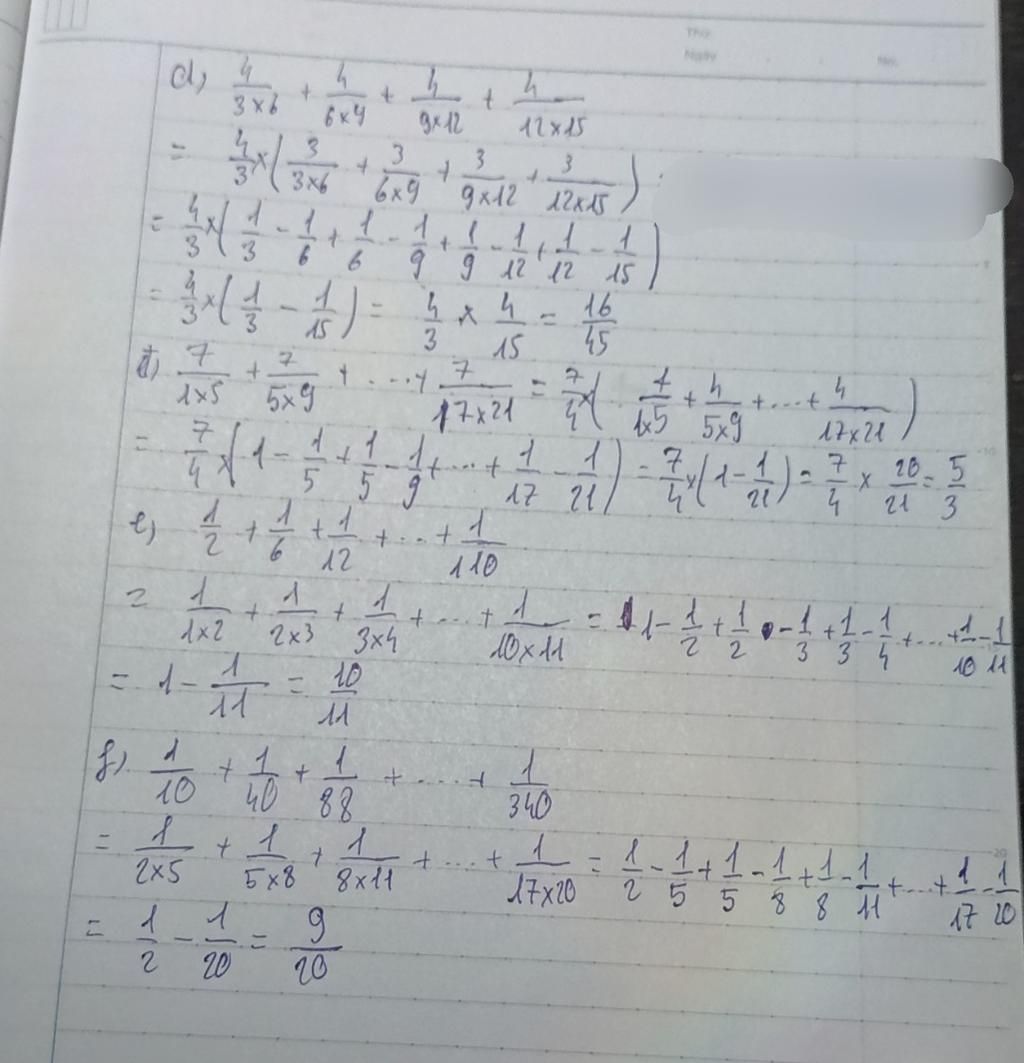 Thứ
Ngày No.
d) 4/(3×6) + 4/(6×9) + 4/(9×12) + 4/(12×15)
= 4/3 × (3/(3×6) + 3/(6×9) + 3/(9×12) + 3/(12×15))
= 4/3 × (1/3 - 1/6 + 1/6 - 1/9 + 1/9 - 1/12 + 1/12 - 1/15)
= 4/3 × (1/3 - 1/15) = 4/3 × 4/15 = 16/45
đ) 7/(1×5) + 7/(5×9) + ...+ 7/(17×21) = 7/4 × (1/(1×5) + 4/(5×9) + ... + 4/(17×21))
= 7/4 × (1 - 1/5 + 1/5 - 1/9 + ... + 1/17 - 1/21) = 7/4 × (1 - 1/21) = 7/4 × 20/21 = 5/3
e) 1/2 + 1/6 + 1/12 + ... + 1/110
= 1/(1×2) + 1/(2×3) + 1/(3×4) + ... + 1/(10×11) = 1 - 1/2 + 1/2 - 1/3 + 1/3 - 1/4 + ... + 1/10 - 1/11
= 1 - 1/11 = 10/11
f) 1/10 + 1/40 + 1/88 + ... + 1/340
= 1/(2×5) + 1/(5×8) + 1/(8×11) + ... + 1/(17×20) = 1/2 - 1/5 + 1/5 - 1/8 + 1/8 - 1/11 + ... + 1/17 - 1/20
= 1/2 - 1/20 = 9/20